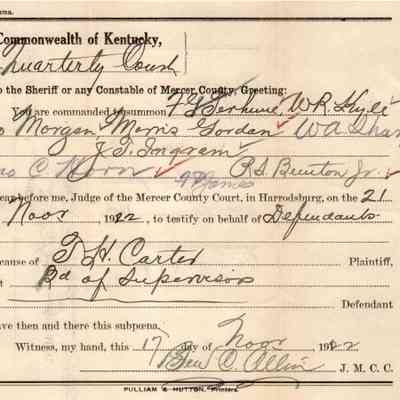 na.
Commonwealth of Kentucky,
Quarterly Court
o the Sheriff or any Constable of Mercer County, Greeting:
You are commanded to summon F G Terhune, W. R. Kyle
Morgan, Morris Gordan, W A
J. T. Ingram
C. Horn R. S. Bunton Jr.
ear before me, Judge of the Mercer County Court, in Harrodsburg, on the 21
Novr 1922, to testify on behalf of Defendants
cause of T. H. Carter Plaintiff,
t Bd of Supervisors
Defendant
ave then and there this subpœna.
Witness, my hand, this 17 day of Novr 1922
Ben C. Allin J. M. C. C.
PULLIAM & HUTTON, Printers